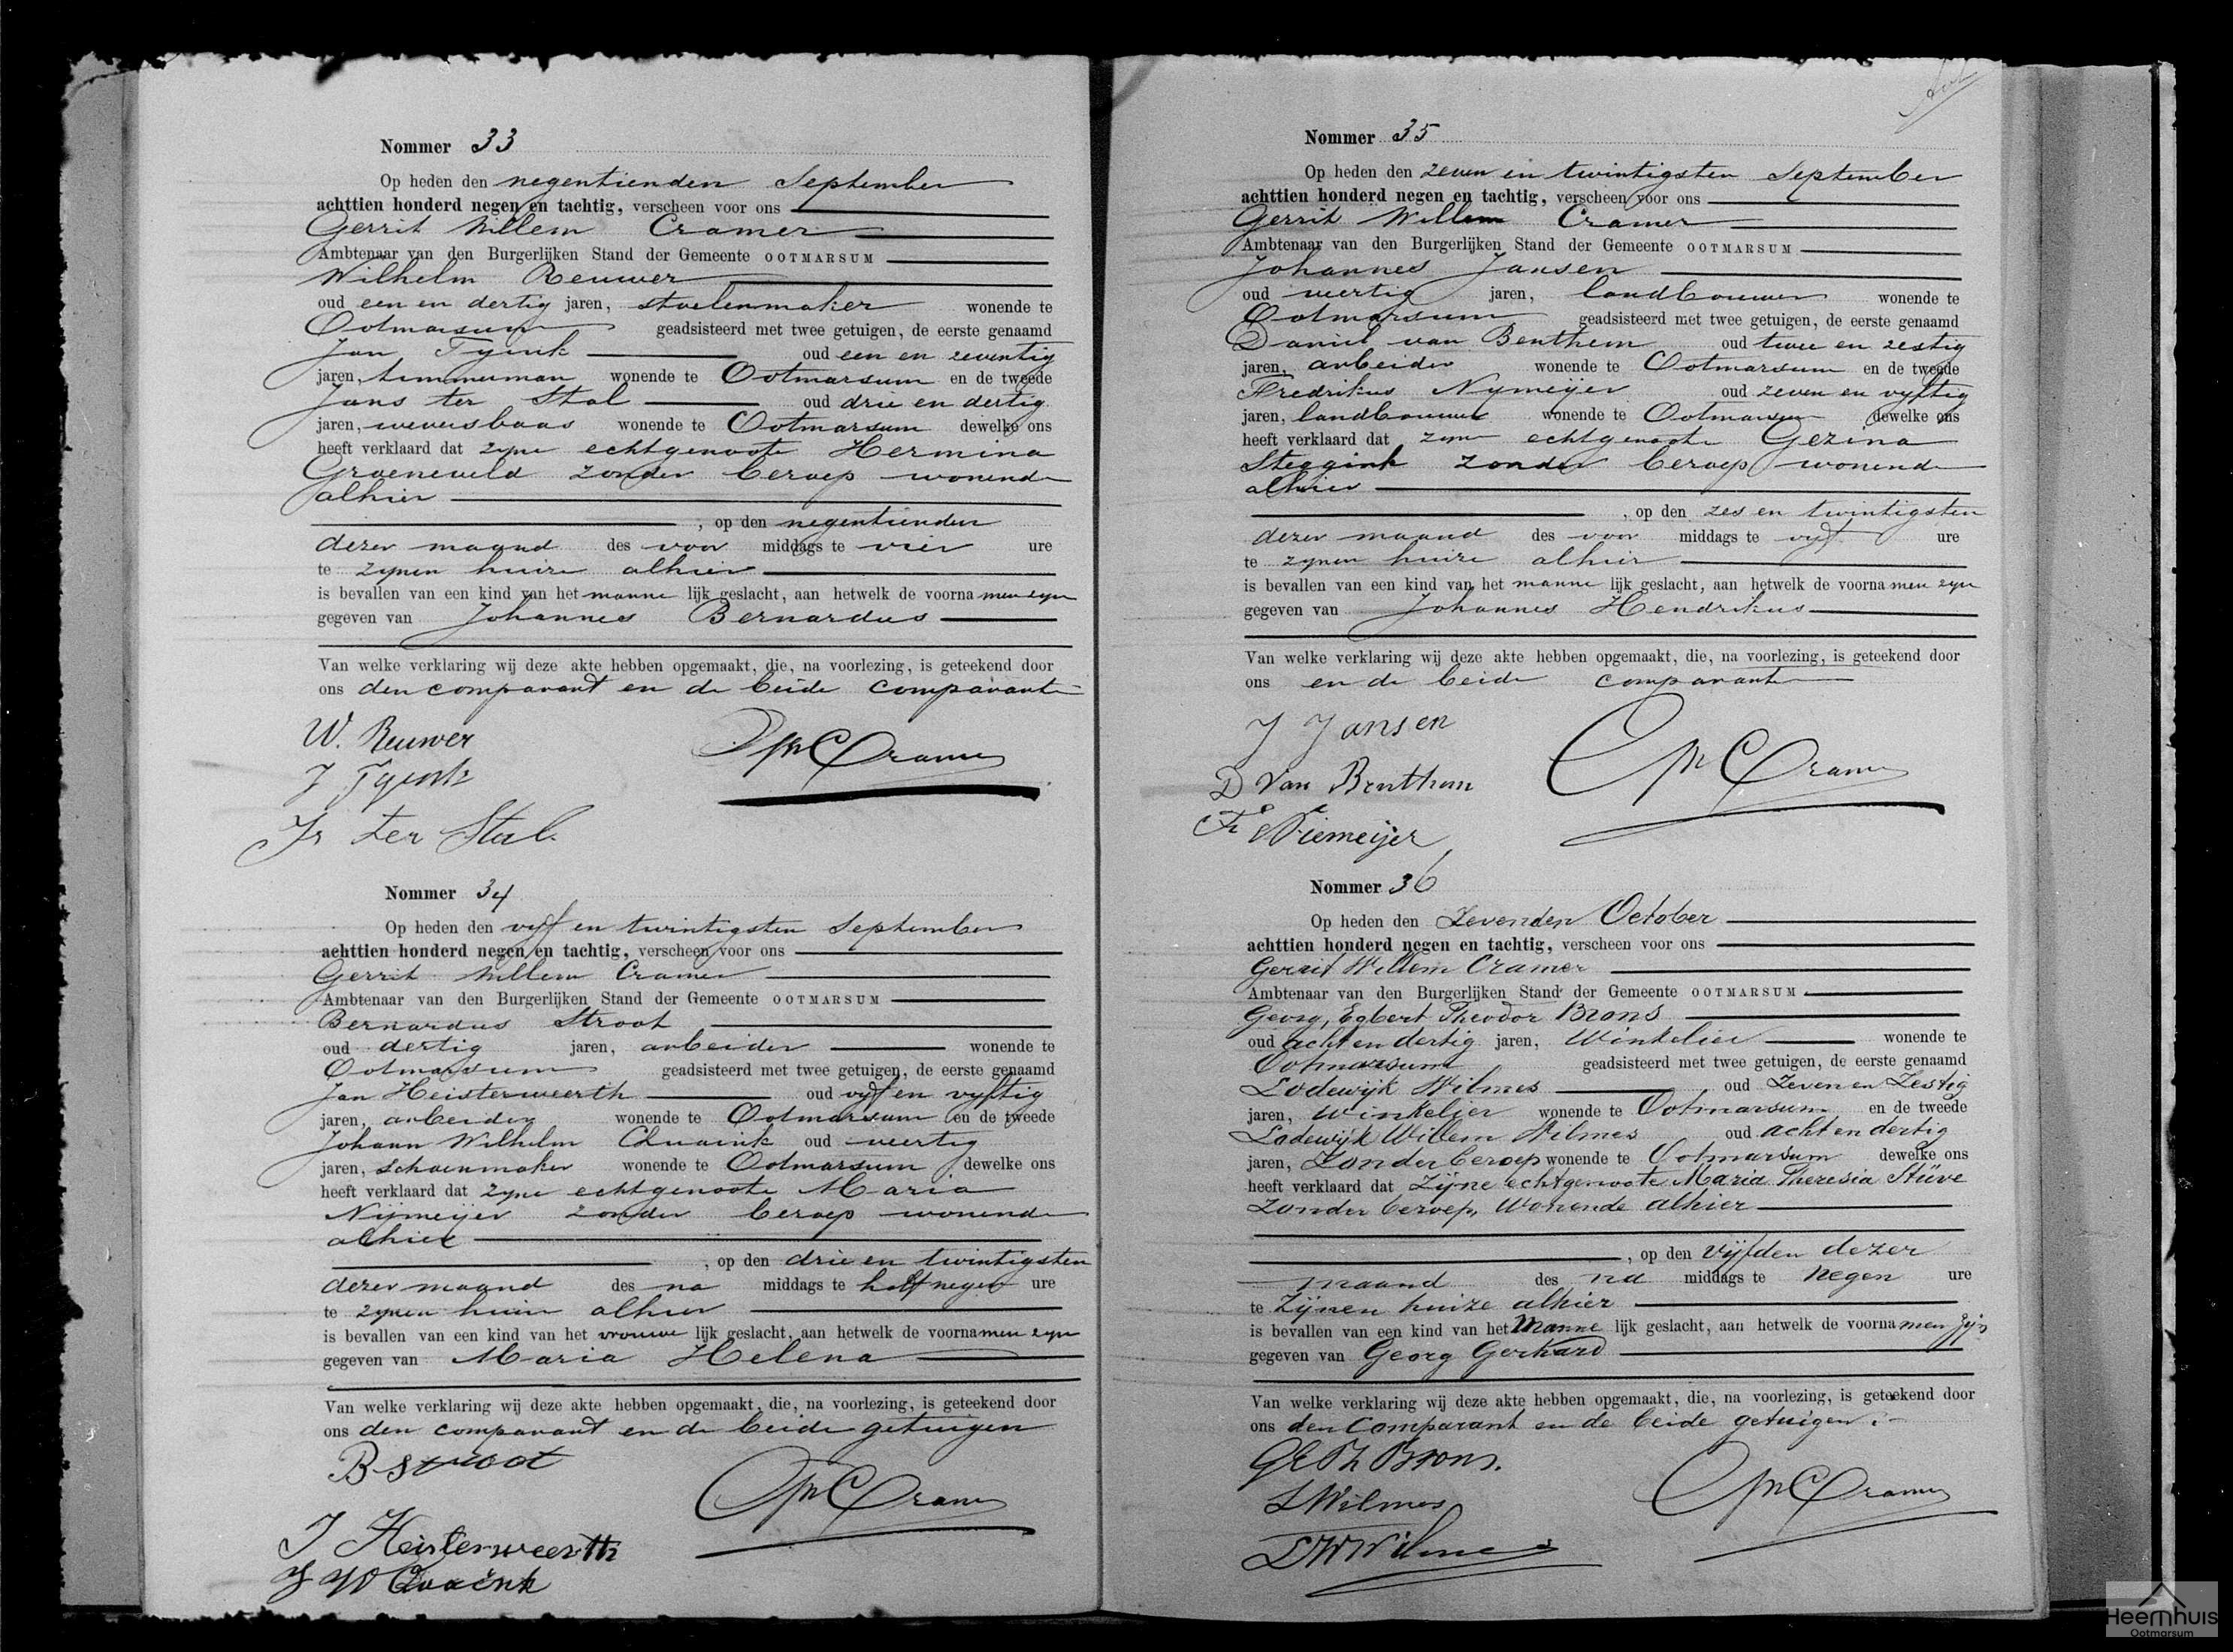 Nommer 33
Op heden den negentienden September
achttien honderd negen en tachtig, verscheen voor ons
Gerrit Willem Cramer
Ambtenaar van den Burgerlijken Stand der Gemeente OOTMARSUM
Wilhelm Reuwer
oud een en dertig jaren, stoelenmaker wonende te
Ootmarsum geadsisteerd met twee getuigen, de eerste genaamd
Jan Tyink oud een en zeventig
jaren, timmerman wonende te Ootmarsum en de tweede
Jans ter Stal oud drie en dertig
jaren, weversbaas wonende te Ootmarsum dewelke ons
heeft verklaard dat zyne echtgenoote Hermina
Groeneveld zonder beroep wonende
alhier
, op den negentienden
dezer maand des voor middags te vier ure
te zynen huize alhier
is bevallen van een kind van het manne lijk geslacht, aan hetwelk de voorna men zyn
gegeven van Johannes Bernardus
Van welke verklaring wij deze akte hebben opgemaakt, die, na voorlezing, is geteekend door
ons den comparant en de beide comparanten
W. Reuwer
J Tyink
Js ter Stal.
GWCramer
Nommer 34
Op heden den vyf en twintigsten September
achttien honderd negen en tachtig, verscheen voor ons
Gerrit Willem Cramer
Ambtenaar van den Burgerlijken Stand der Gemeente OOTMARSUM
Bernardus Stroot
oud dertig jaren, arbeider wonende te
Ootmarsum geadsisteerd met twee getuigen, de eerste genaamd
Jan Heisterweerth oud vyf en vyftig
jaren, arbeider wonende te Ootmarsum en de tweede
Johann Wilhelm Quaink oud veertig
jaren, schoenmaker wonende te Ootmarsum dewelke ons
heeft verklaard dat zyne echtgenoote Maria
Nijmeijer zonder beroep wonende
alhier
, op den drie en twintigsten
dezer maand des na middags te half negen ure
te zynen huize alhier
is bevallen van een kind van het vrouwe lijk geslacht, aan hetwelk de voorna men zyn
gegeven van Maria Helena
Van welke verklaring wij deze akte hebben opgemaakt, die, na voorlezing, is geteekend door
ons den comparant en de beide getuigen
B Stroot
J Heisterweerth
J W Quaink
GWCramer
Nommer 35
Op heden den zeven en twintigsten September
achttien honderd negen en tachtig, verscheen voor ons
Gerrit Willem Cramer
Ambtenaar van den Burgerlijken Stand der Gemeente OOTMARSUM
Johannes Jansen
oud veertig jaren, landbouwer wonende te
Ootmarsum geadsisteerd met twee getuigen, de eerste genaamd
Daniel van Benthem oud twee en zestig
jaren, arbeider wonende te Ootmarsum en de tweede
Fredrikus Nymeijer oud zeven en vyftig
jaren, landbouwer wonende te Ootmarsum dewelke ons
heeft verklaard dat zyne echtgenoote Gezina
Steggink zonder beroep wonende
alhier
, op den zes en twintigsten
dezer maand des voor middags te vyf ure
te zynen huize alhier
is bevallen van een kind van het manne lijk geslacht, aan hetwelk de voorna men zyn
gegeven van Johannes Hendrikus
Van welke verklaring wij deze akte hebben opgemaakt, die, na voorlezing, is geteekend door
ons en de beide comparanten
J Jansen
D Van Benthem
Fr Niemeijer
GWCramer
Nommer 36
Op heden den Zevenden October
achttien honderd negen en tachtig, verscheen voor ons
Gerrit Willem Cramer
Ambtenaar van den Burgerlijken Stand der Gemeente OOTMARSUM
Georg, Egbert Theodor Brons
oud acht en dertig jaren, Winkelier wonende te
Ootmarsum geadsisteerd met twee getuigen, de eerste genaamd
Lodewijk Wilmes oud Zeven en Zestig
jaren, winkelier wonende te Ootmarsum en de tweede
Lodewijk Willem Wilmes oud acht en dertig
jaren, Zonder beroep wonende te Ootmarsum dewelke ons
heeft verklaard dat Zijne echtgenoote Maria Theresia Stüve
Zonder beroep, Wonende alhier
, op den Vijfden dezer
maand des na middags te negen ure
te Zijnen huize alhier
is bevallen van een kind van het Manne lijk geslacht, aan hetwelk de voorna men Zijn
gegeven van Georg Gerhard
Van welke verklaring wij deze akte hebben opgemaakt, die, na voorlezing, is geteekend door
ons den Comparant en de beide getuigen.
GETh Brons.
LWilmes
LWWilmes
GWCramer
Heemhuis
Ootmarsum